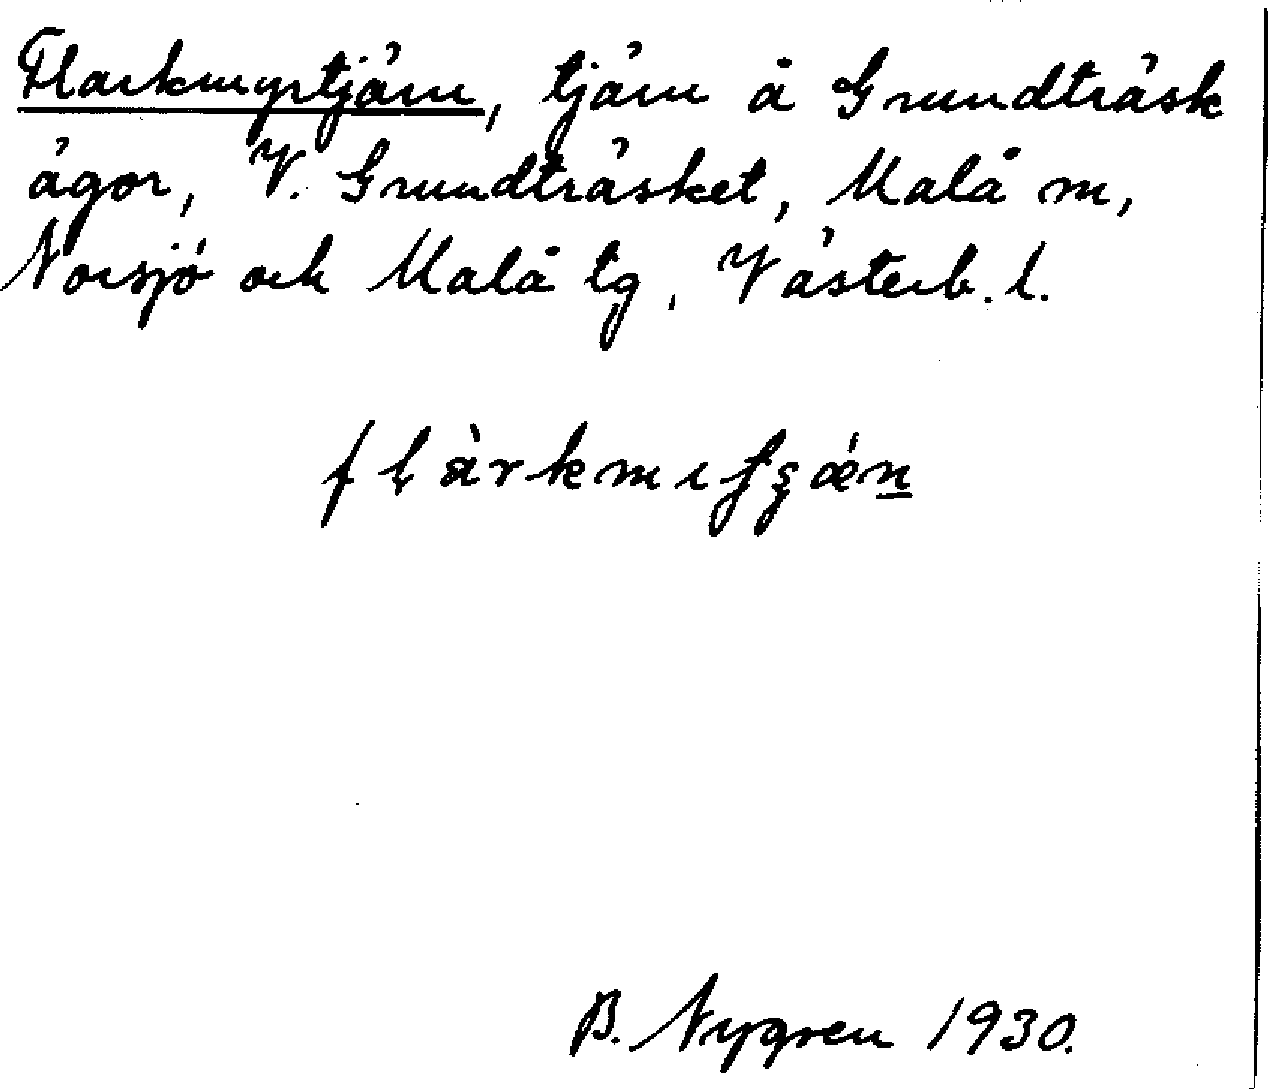 Flarkmyrtjärn, tjärn å Grundträsk
ägor, V. Grundträsket, Malå sn,
Norsjö och Malå tg, Västerb. l.
B. Nygren 1930.